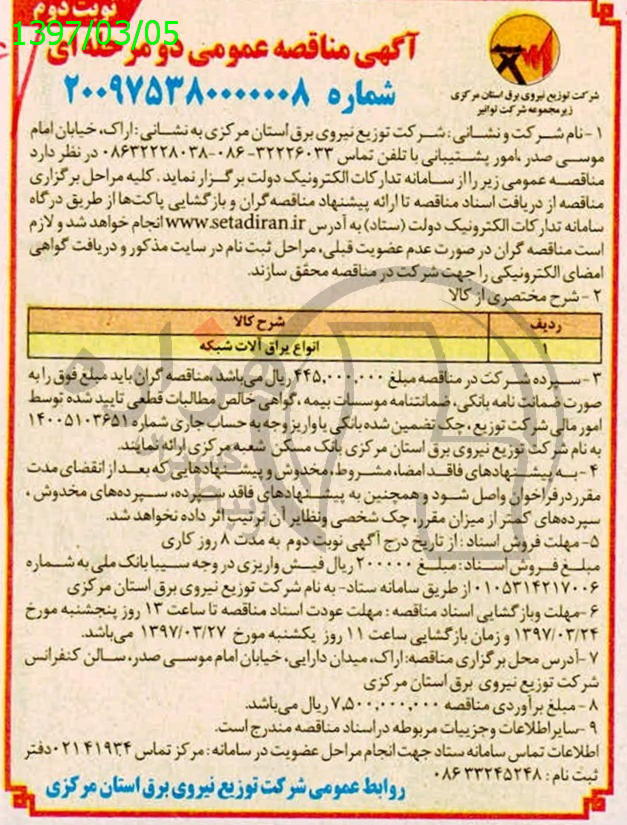 نوبت دوم
1397/03/05
آگهی مناقصه عمومی دو مرحله ای
شماره ۲۰۰۹۷۵۳۸۰۰۰۰۰۰۸
شرکت توزیع نیروی برق استان مرکزی
زیرمجموعه شرکت توانیر
۱- نام شرکت و نشانی: شرکت توزیع نیروی برق استان مرکزی به نشانی: اراک، خیابان امام
موسی صدر، امور پشتیبانی با تلفن تماس ۳۲۲۲۶۰۳۳-۰۸۶ -۰۸۶۳۲۲۲۸۰۳۸ در نظر دارد
مناقصه عمومی زیر را از سامانه تدارکات الکترونیک دولت برگزار نماید. کلیه مراحل برگزاری
مناقصه از دریافت اسناد مناقصه تا ارائه پیشنهاد مناقصه گران و بازگشایی پاکت‌ها از طریق درگاه
سامانه تدارکات الکترونیک دولت (ستاد) به آدرس www.setadiran.ir انجام خواهد شد و لازم
است مناقصه گران در صورت عدم عضویت قبلی، مراحل ثبت نام در سایت مذکور و دریافت گواهی
امضای الکترونیکی را جهت شرکت در مناقصه محقق سازند.
۲- شرح مختصری از کالا
ردیف شرح کالا
۱ انواع یراق آلات شبکه
۳- سپرده شرکت در مناقصه مبلغ ۴۴۵,۰۰۰,۰۰۰ ریال می‌باشد، مناقصه گران باید مبلغ فوق را به
صورت ضمانت نامه بانکی، ضمانتنامه موسسات بیمه، گواهی خالص مطالبات قطعی تایید شده توسط
امور مالی شرکت توزیع، چک تضمین شده بانکی یا واریز وجه به حساب جاری شماره ۱۴۰۰۵۱۰۳۶۵۱
به نام شرکت توزیع نیروی برق استان مرکزی بانک مسکن شعبه مرکزی ارائه نمایند.
۴- به پیشنهادهای فاقد امضا، مشروط، مخدوش و پیشنهادهایی که بعد از انقضای مدت
مقرر در فراخوان واصل شود و همچنین به پیشنهادهای فاقد سپرده، سپرده‌های مخدوش،
سپرده‌های کمتر از میزان مقرر، چک شخصی ونظایر آن ترتیب اثر داده نخواهد شد.
۵- مهلت فروش اسناد: از تاریخ درج آگهی نوبت دوم به مدت ۸ روز کاری
مبلغ فروش اسناد: مبلغ ۲۰۰۰۰۰ ریال فیش واریزی در وجه سیبا بانک ملی به شماره
۰۱۰۵۳۱۴۲۱۷۰۰۶ از طریق سامانه ستاد- به نام شرکت توزیع نیروی برق استان مرکزی
۶- مهلت وبازگشایی اسناد مناقصه: مهلت عودت اسناد مناقصه تا ساعت ۱۳ روز پنجشنبه مورخ
۱۳۹۷/۰۳/۲۴ و زمان بازگشایی ساعت ۱۱ روز یکشنبه مورخ ۱۳۹۷/۰۳/۲۷ می‌باشد.
۷- آدرس محل برگزاری مناقصه: اراک، میدان دارایی، خیابان امام موسی صدر، سالن کنفرانس
شرکت توزیع نیروی برق استان مرکزی
۸- مبلغ برآوردی مناقصه ۷,۵۰۰,۰۰۰,۰۰۰ ریال می‌باشد.
۹- سایر اطلاعات وجزییات مربوطه دراسناد مناقصه مندرج است.
اطلاعات تماس سامانه ستاد جهت انجام مراحل عضویت در سامانه: مرکز تماس ۰۲۱۴۱۹۳۴ دفتر
ثبت نام: ۰۸۶۳۳۲۴۵۲۴۸
روابط عمومی شرکت توزیع نیروی برق استان مرکزی